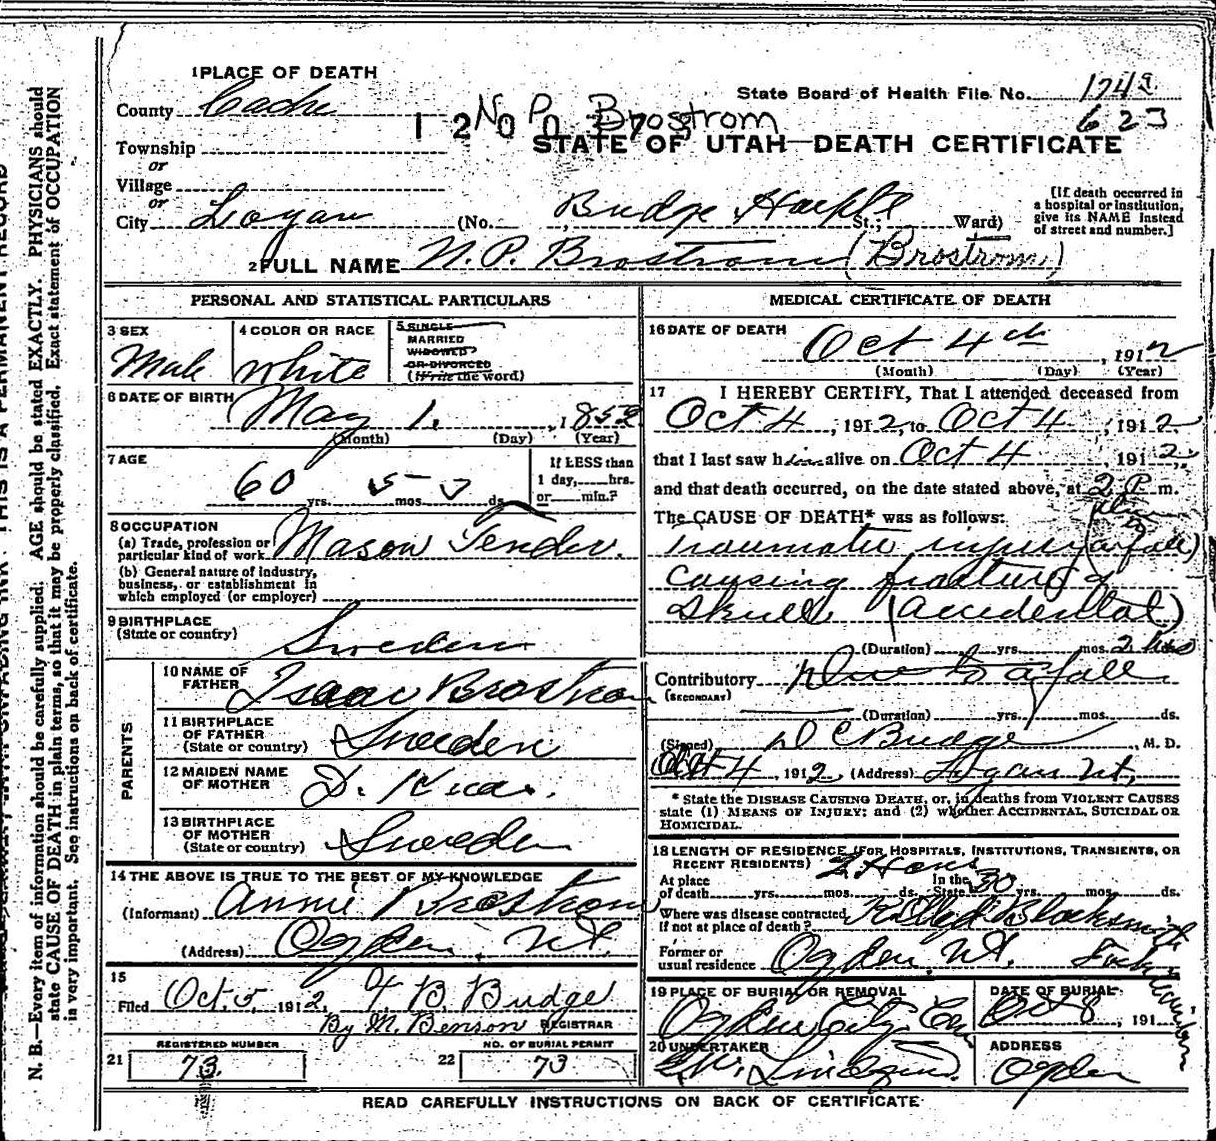 1 PLACE OF DEATH
County Cache
State Board of Health File No. 174a
623
N P Brostrom
STATE OF UTAH—DEATH CERTIFICATE
Township
or
Village
or
City Logan (No. Budge St.; Ward)
[If death occurred in
a hospital or institution,
give its NAME instead
of street and number.]
2 FULL NAME N. P. Brostrom (Brostrom)
PERSONAL AND STATISTICAL PARTICULARS
3 SEX
Male
4 COLOR OR RACE
White
5 SINGLE
MARRIED
WIDOWED
OR DIVORCED
(Write the word)
6 DATE OF BIRTH
May 1, 1852
(Month) (Day) (Year)
7 AGE
60 yrs. 5 mos. ds.
If LESS than
1 day, hrs.
or min.?
8 OCCUPATION
(a) Trade, profession or
particular kind of work Mason Tender.
(b) General nature of industry,
business, or establishment in
which employed (or employer)
9 BIRTHPLACE
(State or country) Sweden
PARENTS
10 NAME OF
FATHER Isaac Brostrom
11 BIRTHPLACE
OF FATHER
(State or country) Sweden
12 MAIDEN NAME
OF MOTHER D.
13 BIRTHPLACE
OF MOTHER
(State or country) Sweden
14 THE ABOVE IS TRUE TO THE BEST OF MY KNOWLEDGE
(Informant) Annie Brostrom
(Address) Ogden, Ut.
15
Filed Oct, 5, 1912, B. Budge
By M. Benson REGISTRAR
21 REGISTERED NUMBER
73
22 NO. OF BURIAL PERMIT
73
MEDICAL CERTIFICATE OF DEATH
16 DATE OF DEATH
Oct 4th, 1912
(Month) (Day) (Year)
17 I HEREBY CERTIFY, That I attended deceased from
Oct 4, 1912, to Oct 4, 1912
that I last saw him alive on Oct 4, 1912,
and that death occurred, on the date stated above, at 2 P m.
The CAUSE OF DEATH* was as follows:
Traumatic injury (a fall)
causing fracture of
Skull (Accidental)
(Duration) yrs. mos. 2 hrs
Contributory Due to a fall
(SECONDARY)
(Duration) yrs. mos. ds.
(Signed) D C Budge, M. D.
Oct 4, 1912 (Address) Logan Ut,
* State the DISEASE CAUSING DEATH, or, in deaths from VIOLENT CAUSES
state (1) MEANS OF INJURY; and (2) whether ACCIDENTAL, SUICIDAL OR
HOMICIDAL.
18 LENGTH OF RESIDENCE (FOR HOSPITALS, INSTITUTIONS, TRANSIENTS, OR
RECENT RESIDENTS)
At place
of death yrs. mos. ds. In the State 30 yrs. mos. ds.
Where was disease contracted
If not at place of death? Blacksmith
Former or
usual residence Ogden, Ut.
19 PLACE OF BURIAL OR REMOVAL
Ogden City Cem
DATE OF BURIAL
Oct 8, 191
20 UNDERTAKER
ADDRESS
Ogden
READ CAREFULLY INSTRUCTIONS ON BACK OF CERTIFICATE
N. B.—Every item of information should be carefully supplied. AGE should be stated EXACTLY. PHYSICIANS should
state CAUSE OF DEATH in plain terms, so that it may be properly classified. Exact statement of OCCUPATION
is very important. See instructions on back of certificate.
THIS IS A PERMANENT RECORD